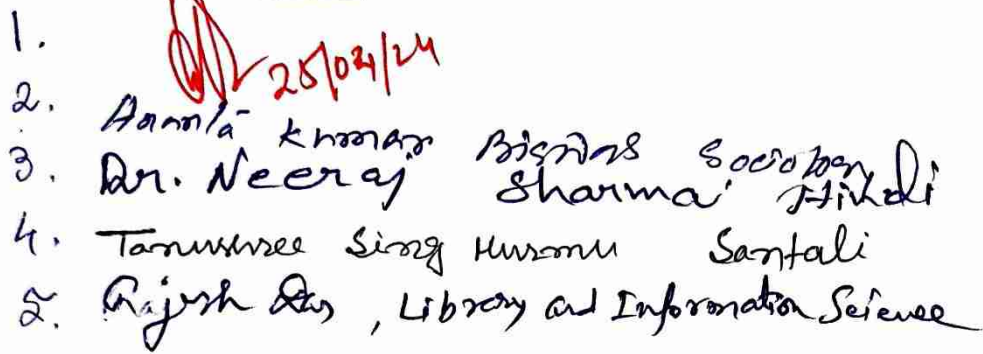 1. 25/04/24
2. Kumar Biswas Sociology
3. Dr. Neeraj Sharma Hindi
4. Tanushree Sing Murmu Santali
5. Rajesh Das, Library and Information Science